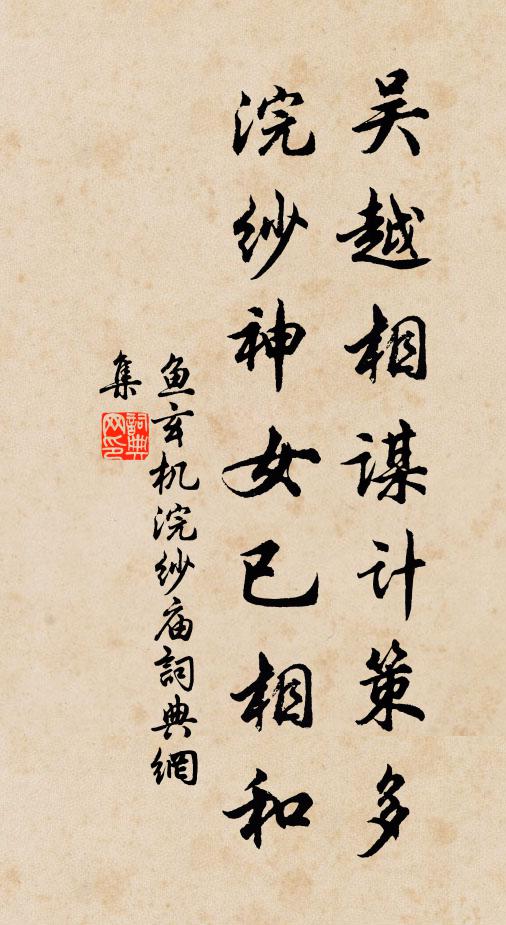 吴越相謀计策多
浣纱神女已相和
鱼玄机浣纱庙詞典網
集
詞典网印